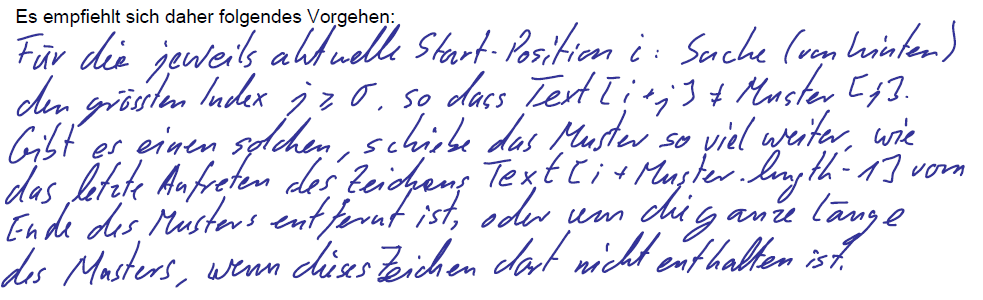 Es empfiehlt sich daher folgendes Vorgehen:
Für die jeweils aktuelle Start-Position i: Suche (von hinten)
den grössten Index j ≥ 0, so dass Text[i+j] ≠ Muster[j].
Gibt es einen solchen, schiebe das Muster so viel weiter, wie
das letzte Aufreten des Zeichens Text[i+Muster.length-1] vom
Ende des Musters entfernt ist, oder um die ganze Länge
des Musters, wenn dieses Zeichen dort nicht enthalten ist.